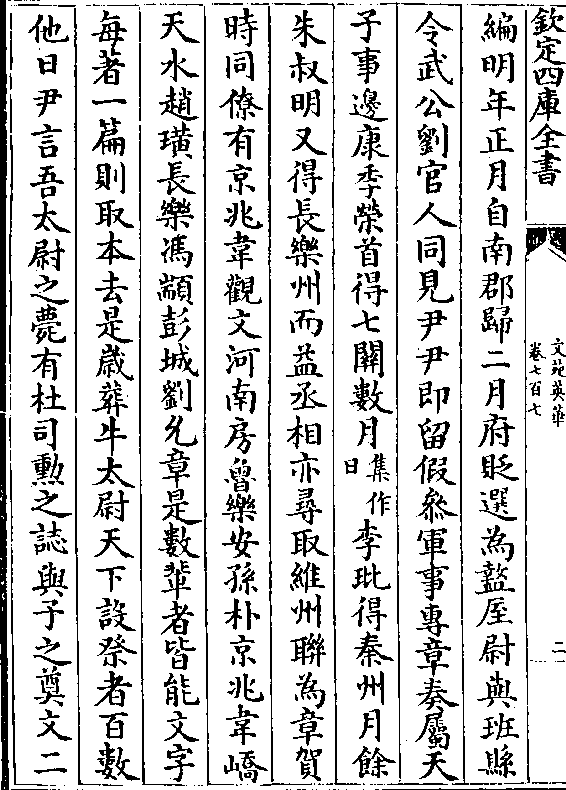 欽定四庫全書
文苑英華
卷七百七
二
編明年正月自南郡歸二月府貶選為盩厔尉與班縣
令武公劉官人同見尹尹即留假叅軍事專章奏屬天
子事邊康季榮首得七關數月集作日李玭得秦州月餘
朱叔明又得長樂州而益丞相亦尋取維州聯為章賀
時同僚有京兆韋觀文河南房魯樂安孫朴京兆韋嶠
天水趙璜長樂馮顓彭城劉允章是數輩者皆能文字
每著一篇則取本去是歲葬牛太尉天下設祭者百數
他日尹言吾太尉之薨有杜司勲之誌與子之奠文二